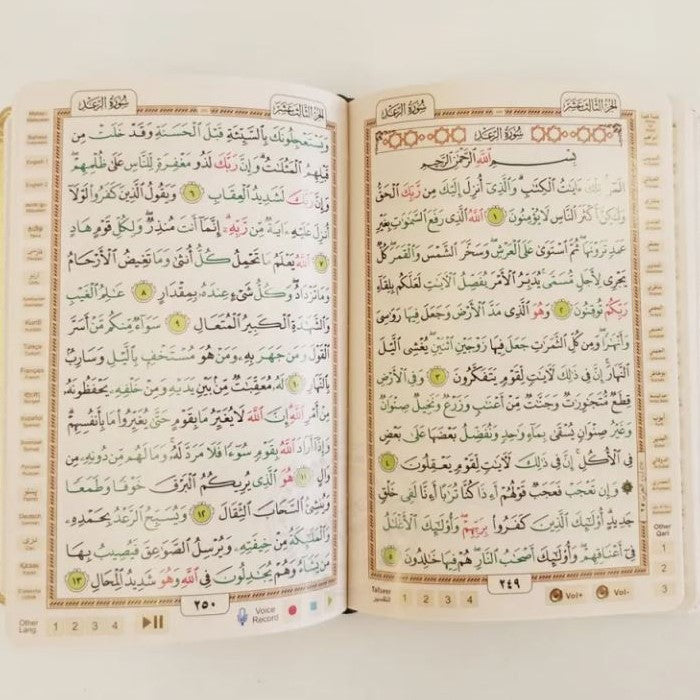 سورة الرعد
الجزء الثالث عشر
سورة الرعد
بسم الله الرحمن الرحيم
الٓمٓر تِلْكَ ءَايَٰتُ الْكِتَٰبِ وَالَّذِىٓ أُنزِلَ إِلَيْكَ مِن رَّبِّكَ الْحَقُّ
وَلَٰكِنَّ أَكْثَرَ النَّاسِ لَا يُؤْمِنُونَ ١ اللَّهُ الَّذِى رَفَعَ السَّمَٰوَٰتِ بِغَيْرِ
عَمَدٍ تَرَوْنَهَا ثُمَّ اسْتَوَىٰ عَلَى الْعَرْشِ وَسَخَّرَ الشَّمْسَ وَالْقَمَرَ كُلٌّ
يَجْرِى لِأَجَلٍ مُّسَمًّى يُدَبِّرُ الْأَمْرَ يُفَصِّلُ الْءَايَٰتِ لَعَلَّكُم بِلِقَآءِ
رَبِّكُمْ تُوقِنُونَ ٢ وَهُوَ الَّذِى مَدَّ الْأَرْضَ وَجَعَلَ فِيهَا رَوَٰسِىَ
وَأَنْهَٰرًا وَمِن كُلِّ الثَّمَرَٰتِ جَعَلَ فِيهَا زَوْجَيْنِ اثْنَيْنِ يُغْشِى الَّيْلَ
النَّهَارَ إِنَّ فِى ذَٰلِكَ لَءَايَٰتٍ لِّقَوْمٍ يَتَفَكَّرُونَ ٣ وَفِى الْأَرْضِ
قِطَعٌ مُّتَجَٰوِرَٰتٌ وَجَنَّٰتٌ مِّنْ أَعْنَٰبٍ وَزَرْعٌ وَنَخِيلٌ صِنْوَانٌ
وَغَيْرُ صِنْوَانٍ يُسْقَىٰ بِمَآءٍ وَٰحِدٍ وَنُفَضِّلُ بَعْضَهَا عَلَىٰ بَعْضٍ
فِى الْأُكُلِ إِنَّ فِى ذَٰلِكَ لَءَايَٰتٍ لِّقَوْمٍ يَعْقِلُونَ ٤
۞ وَإِن تَعْجَبْ فَعَجَبٌ قَوْلُهُمْ أَءِذَا كُنَّا تُرَٰبًا أَءِنَّا لَفِى خَلْقٍ
جَدِيدٍ أُو۟لَٰٓئِكَ الَّذِينَ كَفَرُوا۟ بِرَبِّهِمْ وَأُو۟لَٰٓئِكَ الْأَغْلَٰلُ
فِىٓ أَعْنَاقِهِمْ وَأُو۟لَٰٓئِكَ أَصْحَٰبُ النَّارِ هُمْ فِيهَا خَٰلِدُونَ ٥
٢٤٩
Other
Qari
1
2
3
Tafseer
1 2 3 4
Vol+
Vol-
سورة الرعد
الجزء الثالث عشر
وَيَسْتَعْجِلُونَكَ بِالسَّيِّئَةِ قَبْلَ الْحَسَنَةِ وَقَدْ خَلَتْ مِن
قَبْلِهِمُ الْمَثُلَٰتُ وَإِنَّ رَبَّكَ لَذُو مَغْفِرَةٍ لِّلنَّاسِ عَلَىٰ ظُلْمِهِمْ
وَإِنَّ رَبَّكَ لَشَدِيدُ الْعِقَابِ ٦ وَيَقُولُ الَّذِينَ كَفَرُوا۟ لَوْلَآ
أُنزِلَ عَلَيْهِ ءَايَةٌ مِّن رَّبِّهِۦٓ إِنَّمَآ أَنتَ مُنذِرٌ وَلِكُلِّ قَوْمٍ هَادٍ
٧ اللَّهُ يَعْلَمُ مَا تَحْمِلُ كُلُّ أُنثَىٰ وَمَا تَغِيضُ الْأَرْحَامُ
وَمَا تَزْدَادُ وَكُلُّ شَىْءٍ عِندَهُۥ بِمِقْدَارٍ ٨ عَٰلِمُ الْغَيْبِ
وَالشَّهَٰدَةِ الْكَبِيرُ الْمُتَعَالِ ٩ سَوَآءٌ مِّنكُم مَّنْ أَسَرَّ
الْقَوْلَ وَمَن جَهَرَ بِهِۦ وَمَنْ هُوَ مُسْتَخْفٍۭ بِالَّيْلِ وَسَارِبٌۢ
بِالنَّهَارِ ١٠ لَهُۥ مُعَقِّبَٰتٌ مِّنۢ بَيْنِ يَدَيْهِ وَمِنْ خَلْفِهِۦ يَحْفَظُونَهُۥ
مِنْ أَمْرِ اللَّهِ إِنَّ اللَّهَ لَا يُغَيِّرُ مَا بِقَوْمٍ حَتَّىٰ يُغَيِّرُوا۟ مَا بِأَنفُسِهِمْ
وَإِذَآ أَرَادَ اللَّهُ بِقَوْمٍ سُوٓءًا فَلَا مَرَدَّ لَهُۥ وَمَا لَهُم مِّن دُونِهِۦ مِن
وَالٍ ١١ هُوَ الَّذِى يُرِيكُمُ الْبَرْقَ خَوْفًا وَطَمَعًا
وَيُنشِئُ السَّحَابَ الثِّقَالَ ١٢ وَيُسَبِّحُ الرَّعْدُ بِحَمْدِهِۦ
وَالْمَلَٰٓئِكَةُ مِنْ خِيفَتِهِۦ وَيُرْسِلُ الصَّوَٰعِقَ فَيُصِيبُ بِهَا
مَن يَشَآءُ وَهُمْ يُجَٰدِلُونَ فِى اللَّهِ وَهُوَ شَدِيدُ الْمِحَالِ ١٣
٢٥٠
English 1
English 2
اردو
Türkçe
Français
Español
Русский
Deutsch
Other
Lang.
1 2 3 4
Voice
Record